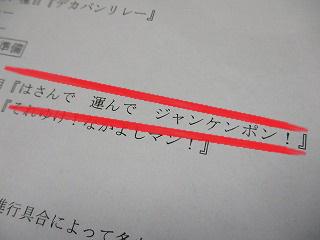 種目『デカパンリレー』
準備
目『はさんで　運んで　ジャンケンポン！』
『それゆけ！なかよしマン！』
進行具合によって